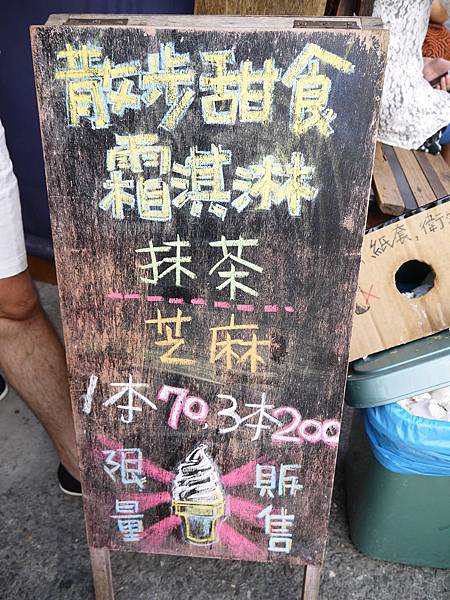 散步甜食
霜淇淋
抹茶
芝麻
1本70.3本200
限量
販售
紙套、衛